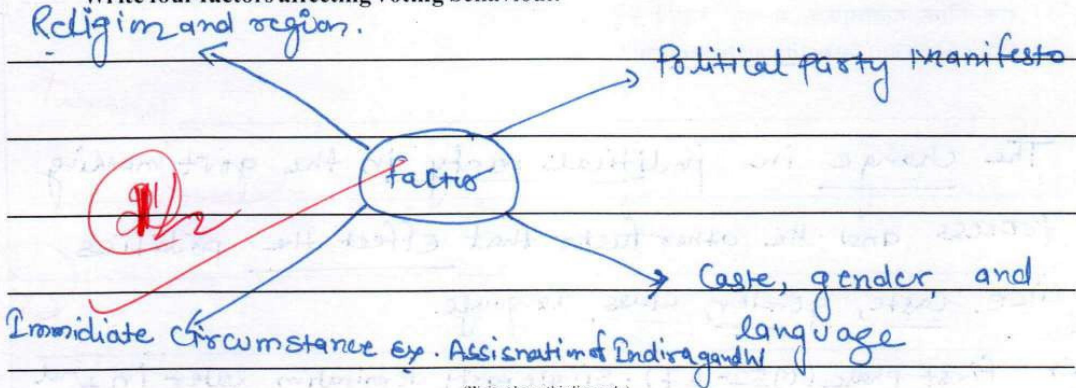 Write four factors affecting voting behaviour.
Religion and region.
Political party Manifesto
factor
Caste, gender, and
language
Immidiate Circumstance ex. Assisnation of Indira gandhi